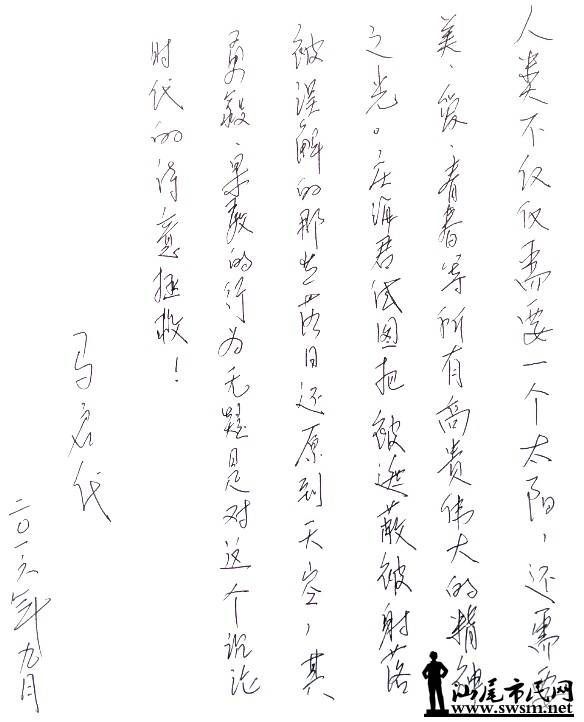 人类不仅仅需要一个太阳，还需要
美、爱、青春等所有高贵伟大的精神
之光。庄海君试图把被遮蔽被射落
被误解的那些落日还原到天空，其
勇毅、果敢的行为无疑是对这个沉沦
时代的诗意拯救！
马启代
二〇一六年九月
汕尾市民网
www.swsm.net